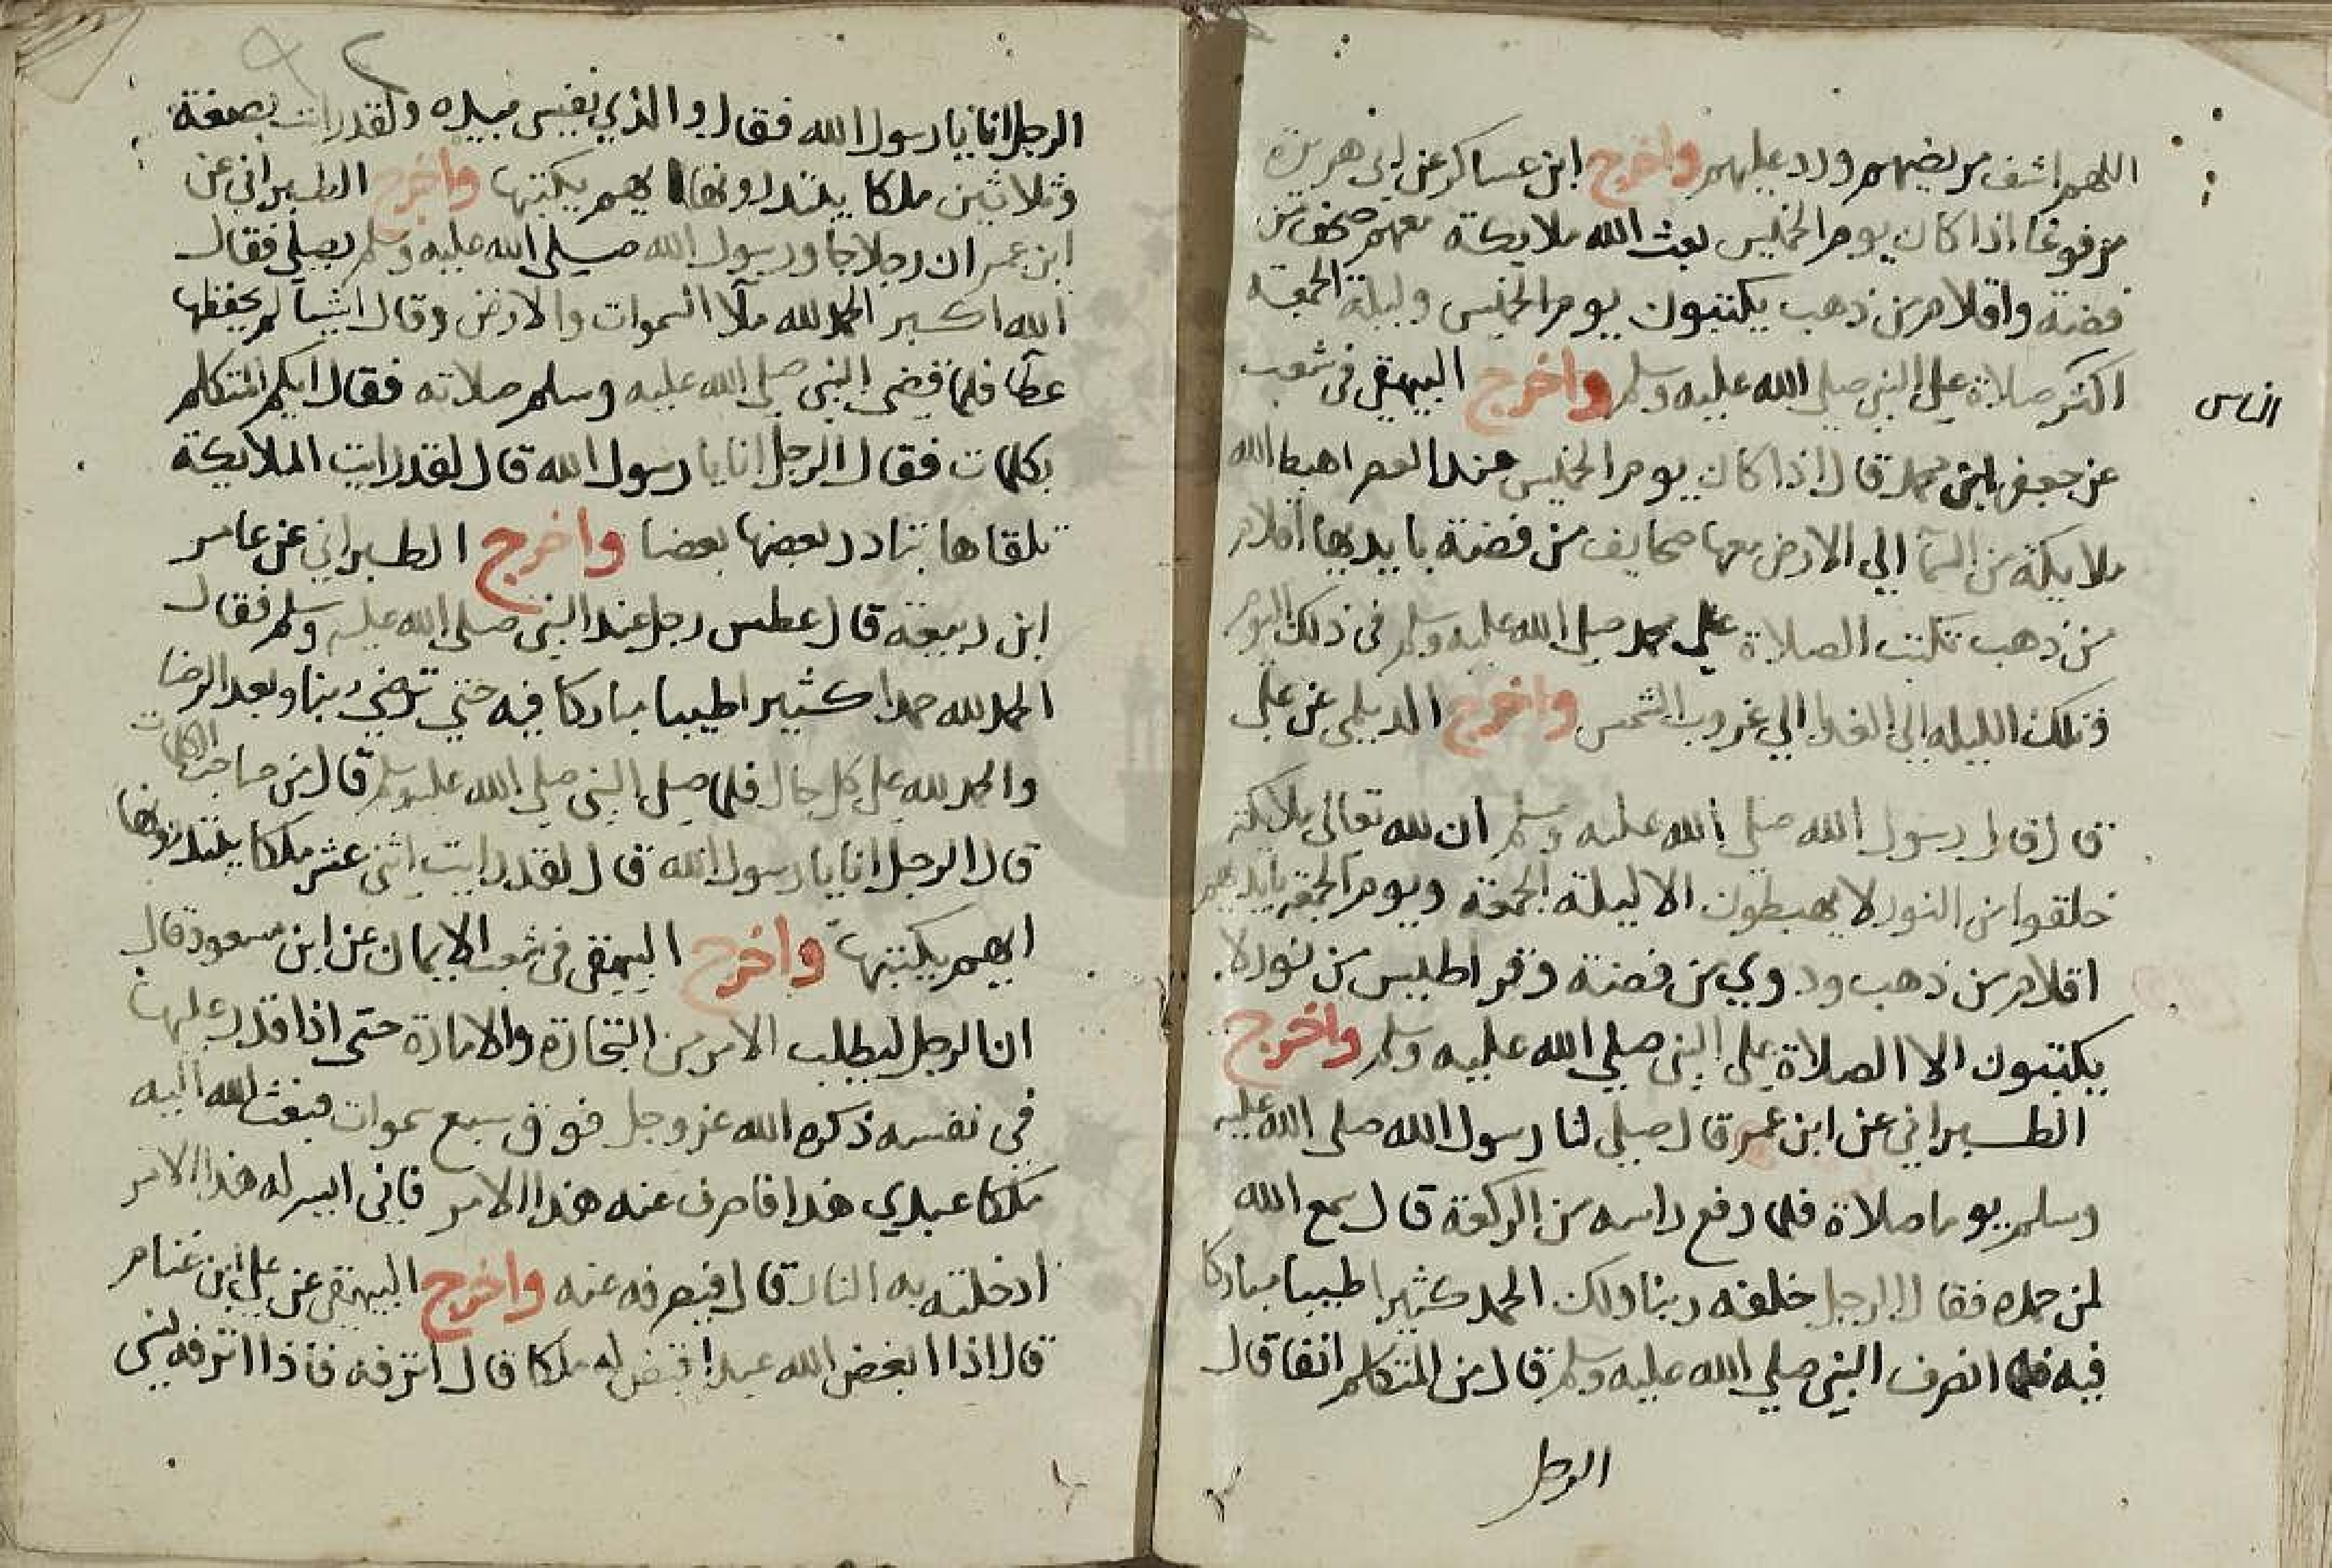 اللهم اشف مريضهم ورد عليهم واخرج ابن عساكر عن ابى هريرة
مرفوعا اذا كان يوم الخميس بعث الله ملايكة معهم صحف من
فضة واقلام من ذهب يكتبون يوم الخميس وليلة الجمعة
اكثر صلاة على النبى صلى الله عليه وسلم واخرج البيهقى فى شعب
الناس
عن جعفر ابن محمد قال اذا كان يوم الخميس عند العصر اهبط الله
ملايكة من السمآ الي الارض معها صحايف من فضة بايديها اقلام
من ذهب تكتب الصلاة علي محمد صلى الله عليه وسلم فى ذلك اليوم
وتلك الليله الى الغد الي غروب الشمس واخرج الديلمى عن على
قال قال رسول الله صلى الله عليه وسلم ان لله تعالى ملايكة
خلقوا من النور لا يهبطون الا ليلة الجمعة ويوم الجمعة بايديهم
اقلام من ذهب ودوي من فضة وقراطيس من نور لا
يكتبون الا الصلاة على النبى صلي الله عليه وسلم واخرج
الطبراني عن ابن عمر قال صلي لنا رسول الله صلى الله عليه
وسلم يوما صلاة فلما رفع راسه من الركعة قال سمع الله
لمن حمده فقال الرجل خلفه ربنا ولك الحمد كثيرا طيبا مباركا
فيه فلما انصرف النبى صلي الله عليه وسلم قال من المتكلم انفا قال
الرجل
٩٢
الرجل انا يا رسول الله فقال والذي نفسى بيده ولقد رايت بضعة
وثلاثين ملكا يبتدرونها ايهم يكتبها واخرج الطبرانى عن
ابن عمر ان رجلا جا ورسول الله صلى الله عليه وسلم يصلى فقال
الله اكبر الحمد لله ملآ السموات والارض وقال اشيآ لم يحفظها
عطآ فلما قضى النبى صلى الله عليه وسلم صلاته فقال ايكم المتكلم
بكلمات فقال الرجل انا يا رسول الله قال لقد رايت الملايكة
تلقاها تبادر بعضها بعضا واخرج الطبرانى عن عامر
ابن ربيعة قال عطس رجل عند النبى صلى الله عليه وسلم فقال
الحمد لله حمدا كثيرا طيبا مباركا فيه حتي ترضي ربنا وبعد الرضا
والحمد لله على كل حال فلما صلى النبى صلى الله عليه وسلم قال من صاحب الكلمات
قال الرجل انا يا رسول الله قال لقد رايت اثنى عشر ملكا يبتدرونها
ايهم يكتبها واخرج البيهقى فى شعب الايمان عن ابن مسعود قال
ان الرجل ليطلب الامر من التجارة والامارة حتى اذا قدر عليها
في نفسه ذكره الله عز وجل فوق سبع سموات فبعث الله اليه
ملكا عبدي هذا فاصرف عنه هذا الامر فانى ايسر له هذا الامر
ادخلته به النار قال فيصرفه عنه واخرج البيهقى عن على ابن غنام
قال اذا ابغض الله عبدا قيض له ملكا قال اترفه فاذا اترفه نسى